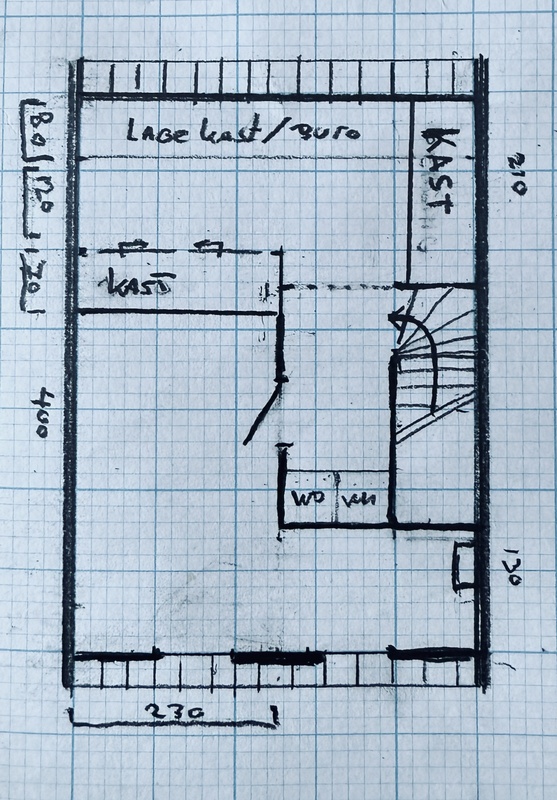 LAGE KAST / BURO
KAST
210
80
120
70
KAST
400
WD
WM
130
230